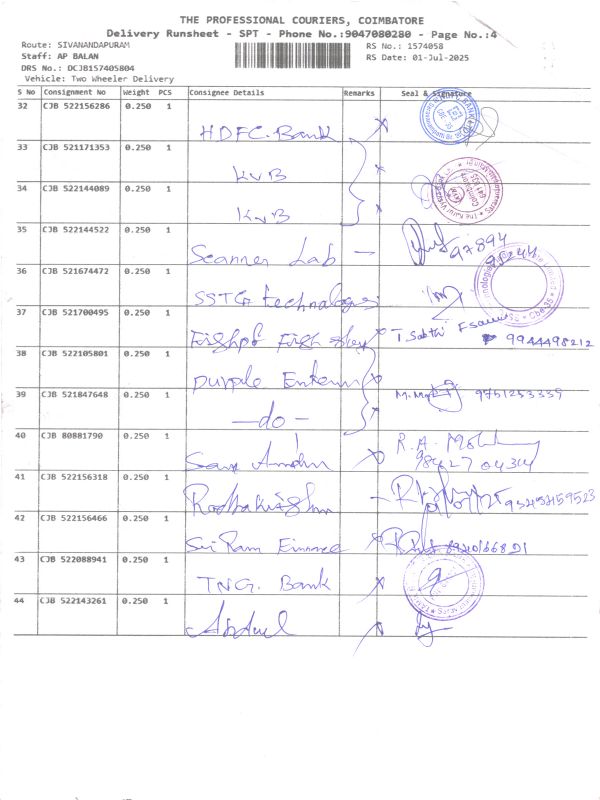 THE PROFESSIONAL COURIERS, COIMBATORE
Delivery Runsheet - SPT - Phone No.:9047080280 - Page No.:4
Route: SIVANANDAPURAM RS No.: 1574058
Staff: AP BALAN RS Date: 01-Jul-2025
DRS No.: DCJB157405804
Vehicle: Two Wheeler Delivery
S No Consignment No Weight PCS Consignee Details Remarks Seal & Signature
32 CJB 522156286 0.250 1
HDFC Bank
33 CJB 521171353 0.250 1
KVB
34 CJB 522144089 0.250 1
KVB
35 CJB 522144522 0.250 1
Scanner Lab — 97894
36 CJB 521674472 0.250 1
SSTG technologies
37 CJB 521700495 0.250 1
T. Sakthi
9944498212
38 CJB 522105801 0.250 1
purple
39 CJB 521847648 0.250 1 9751253339
—do—
40 CJB 80881790 0.250 1
R.A.
41 CJB 522156318 0.250 1
42 CJB 522156466 0.250 1
Sri Ram Finance
43 CJB 522088941 0.250 1
TNG. Bank
44 CJB 522143261 0.250 1
Abdul